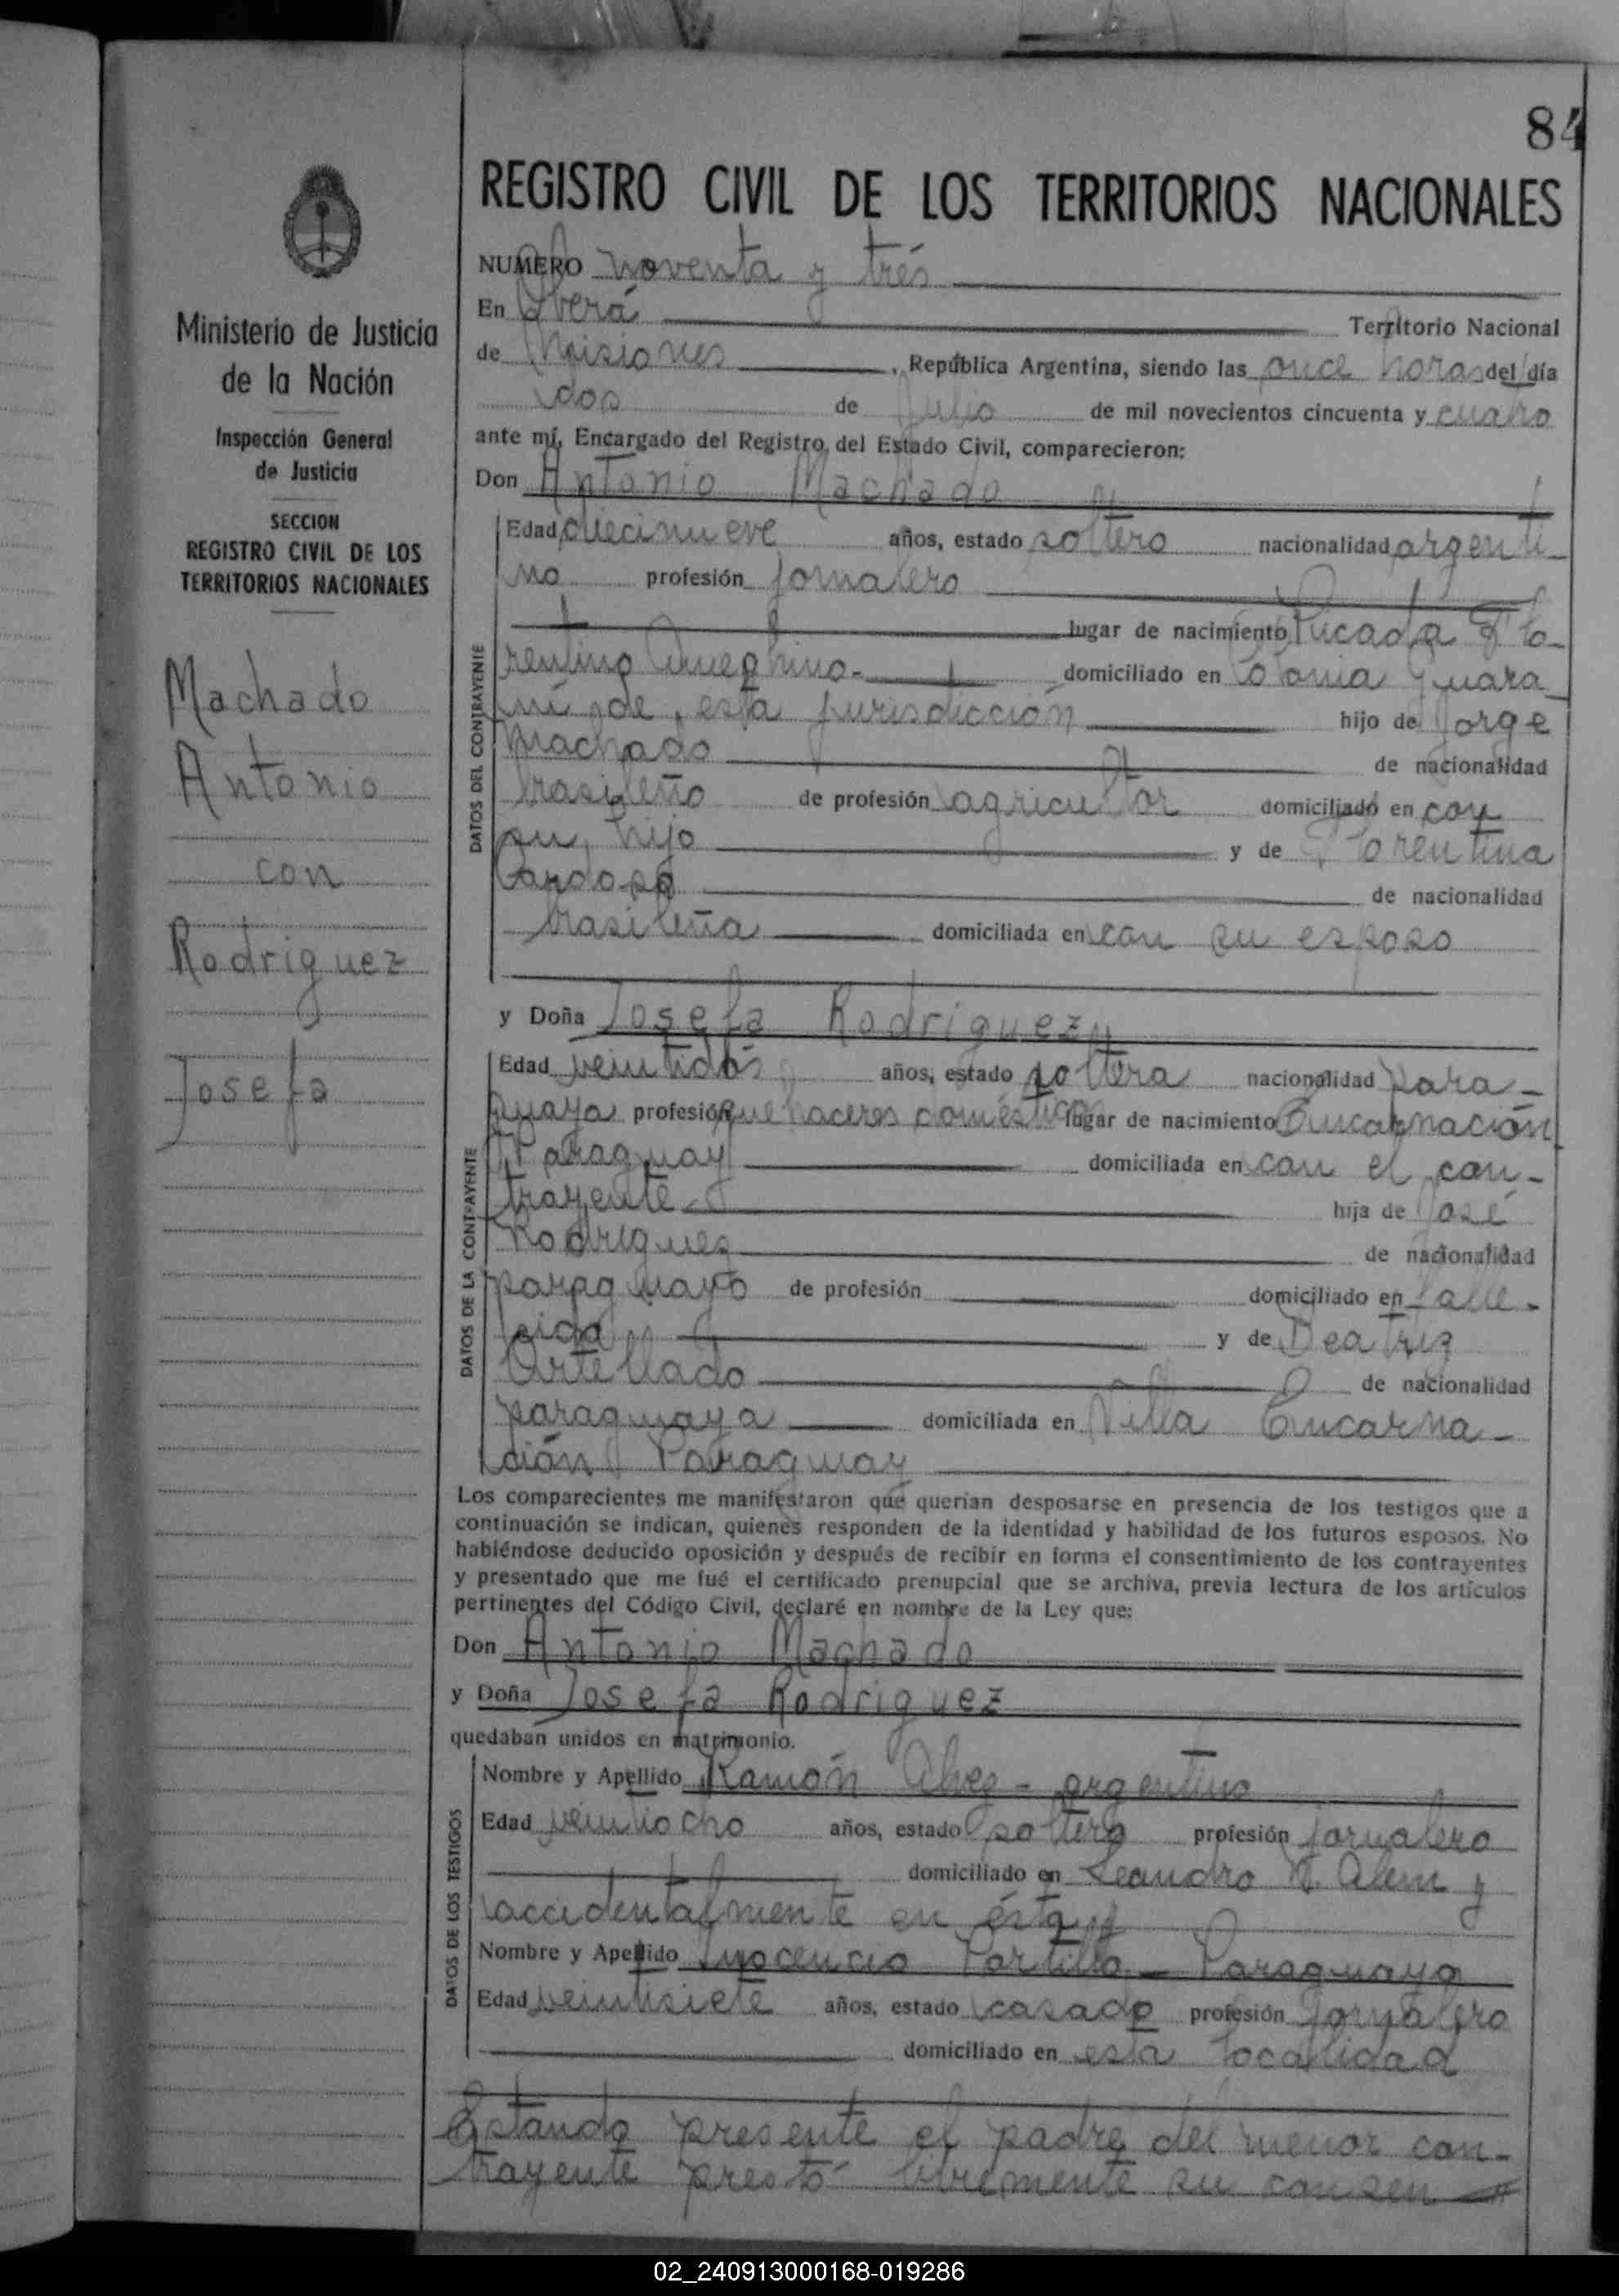 84
REGISTRO CIVIL DE LOS TERRITORIOS NACIONALES
Ministerio de Justicia
de la Nación
Inspección General
de Justicia
SECCION
REGISTRO CIVIL DE LOS
TERRITORIOS NACIONALES
Machado
Antonio
con
Rodriguez
Josefa
NUMERO noventa y trés
En Oberá Territorio Nacional
de Misiones, República Argentina, siendo las once horas del día
dos de Julio de mil novecientos cincuenta y cuatro
ante mí, Encargado del Registro del Estado Civil, comparecieron:
Don Antonio Machado
DATOS DEL CONTRAYENTE
Edad diecinueve años, estado soltero nacionalidad argenti-
no profesión jornalero
lugar de nacimiento Picada Flo-
rentino Ameghino.- domiciliado en Colonia Guara-
ní, de esta jurisdicción hijo de Jorge
Machado de nacionalidad
brasileño de profesión agricultor domiciliado en con
su hijo y de Florentina
Cardoso de nacionalidad
brasileña domiciliada en con su esposo
y Doña Josefa Rodriguez
DATOS DE LA CONTRAYENTE
Edad veintidós años, estado soltera nacionalidad para-
guaya profesión quehaceres domésticos lugar de nacimiento Encarnación
Paraguay domiciliada en con el con-
trayente hija de José
Rodrigues de nacionalidad
paraguayo de profesión domiciliado en falle-
cido y de Beatriz
Ortellado de nacionalidad
paraguaya domiciliada en Villa Encarna-
ción Paraguay
Los comparecientes me manifestaron que querían desposarse en presencia de los testigos que a
continuación se indican, quienes responden de la identidad y habilidad de los futuros esposos. No
habiéndose deducido oposición y después de recibir en forma el consentimiento de los contrayentes
y presentado que me fué el certificado prenupcial que se archiva, previa lectura de los artículos
pertinentes del Código Civil, declaré en nombre de la Ley que:
Don Antonio Machado
y Doña Josefa Rodriguez
quedaban unidos en matrimonio.
DATOS DE LOS TESTIGOS
Nombre y Apellido Ramón Alvez - argentino
Edad veintiocho años, estado soltero profesión jornalero
domiciliado en Leandro N. Alem y
accidentalmente en ésta
Nombre y Apellido Inocencio Portillo - Paraguayo
Edad veintisiete años, estado casado profesión Jornalero
domiciliado en esta localidad
Estando presente el padre del menor con-
trayente prestó libremente su consen
02_240913000168-019286